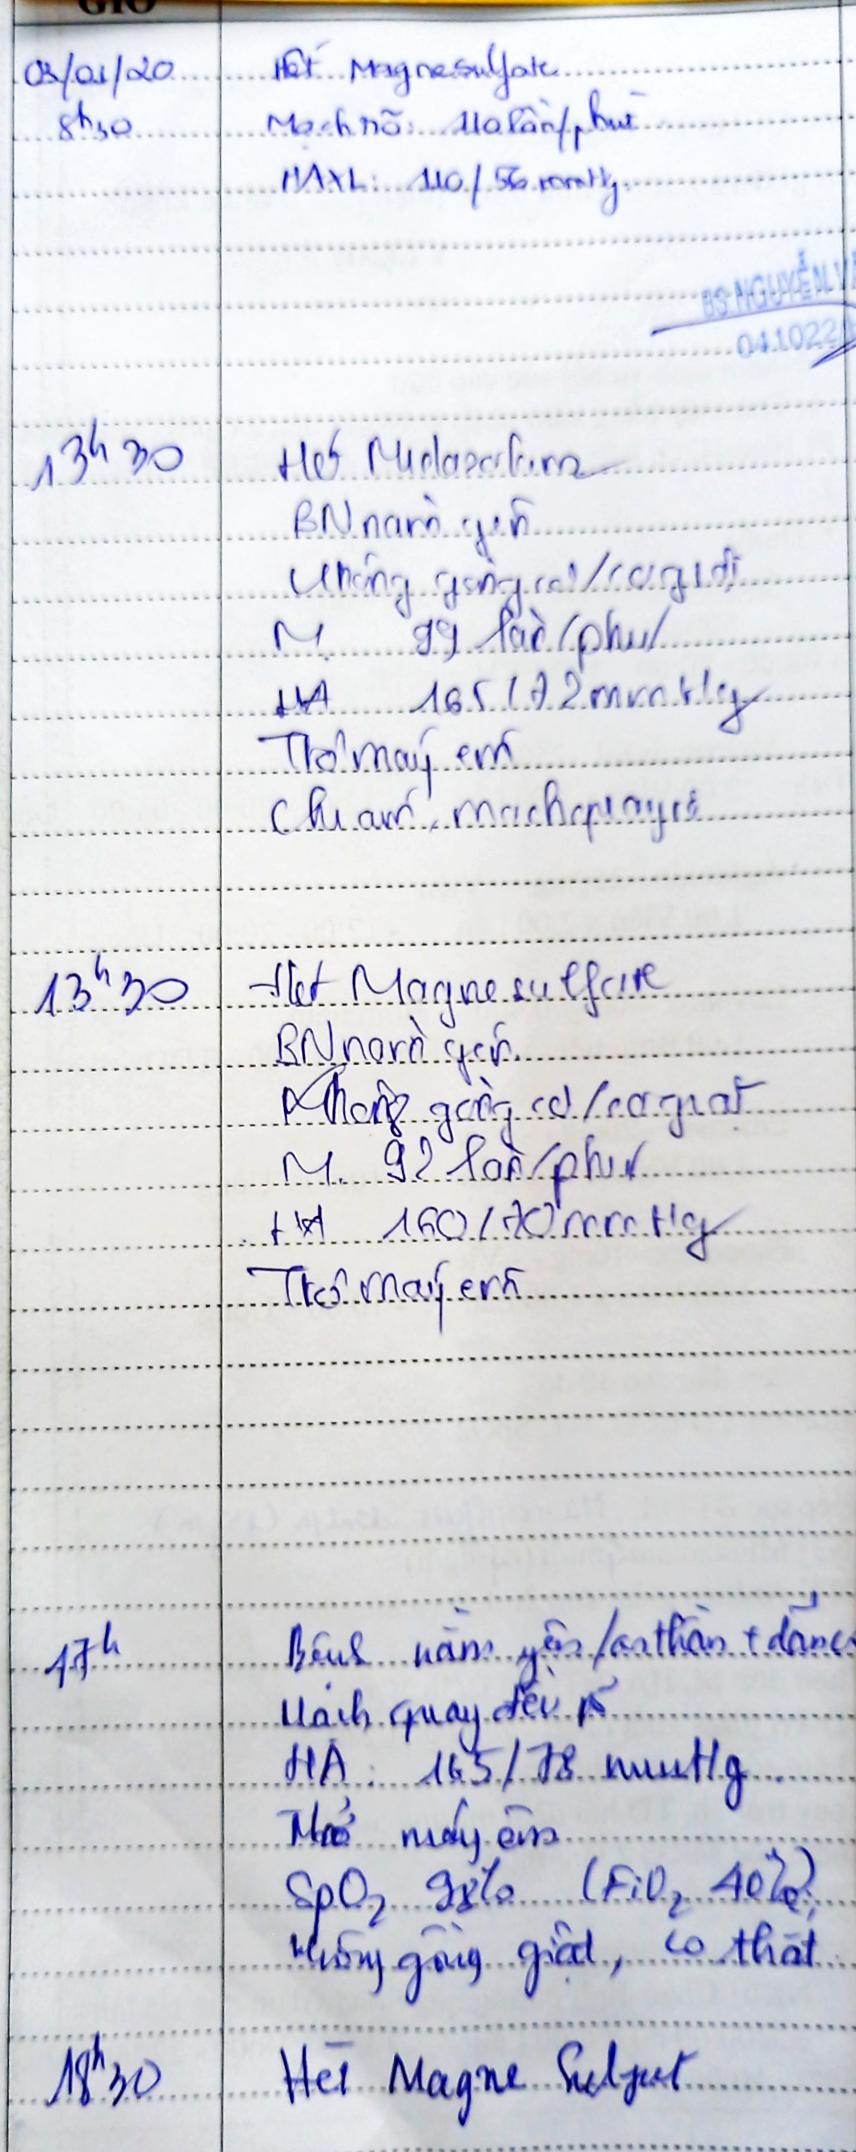 GIỜ
03/01/20 Hết Magnesulfate
8h30 Mạch rõ: 110 lần/phút
HAXL: 110/56 mmHg
BS NGUYỄN V
041022
13h30 Hết Midazolam
BN nằm yên
Không gồng cơ/co giật
M 99 lần/phút
HA 165/72 mmHg
Thở máy êm
Chi ấm, mạch quay rõ
13h30 Hết Magnesulfate
BN nằm yên
Không gồng cơ/co giật
M. 92 lần/phút
HA 160/70 mmHg
Thở máy êm
17h Bệnh nằm yên/an thần +
Mạch quay đều rõ
HA: 165/78 mmHg
Thở máy êm
SpO2 98% (FiO2 40%)
không gồng giật, co thắt
18h30 Hết Magne Sulfat